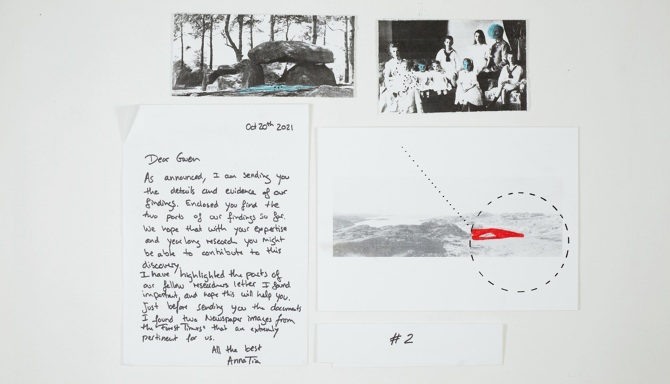 Oct 20th 2021
Dear Gwen
As announced, I am sending you
the details and evidence of our
findings. Enclosed you find the
two parts of our findings so far.
We hope that with your expertise
and yearlong research you might
be able to contribute to this
discovery.
I have highlighted the parts of
our fellow researchers letter I found
important, and hope this will help you.
Just before sending you the documents
I found two Newspaper images from
the "Forest Times" that are extremely
pertinent for us.
All the best
AnnaTia
#2